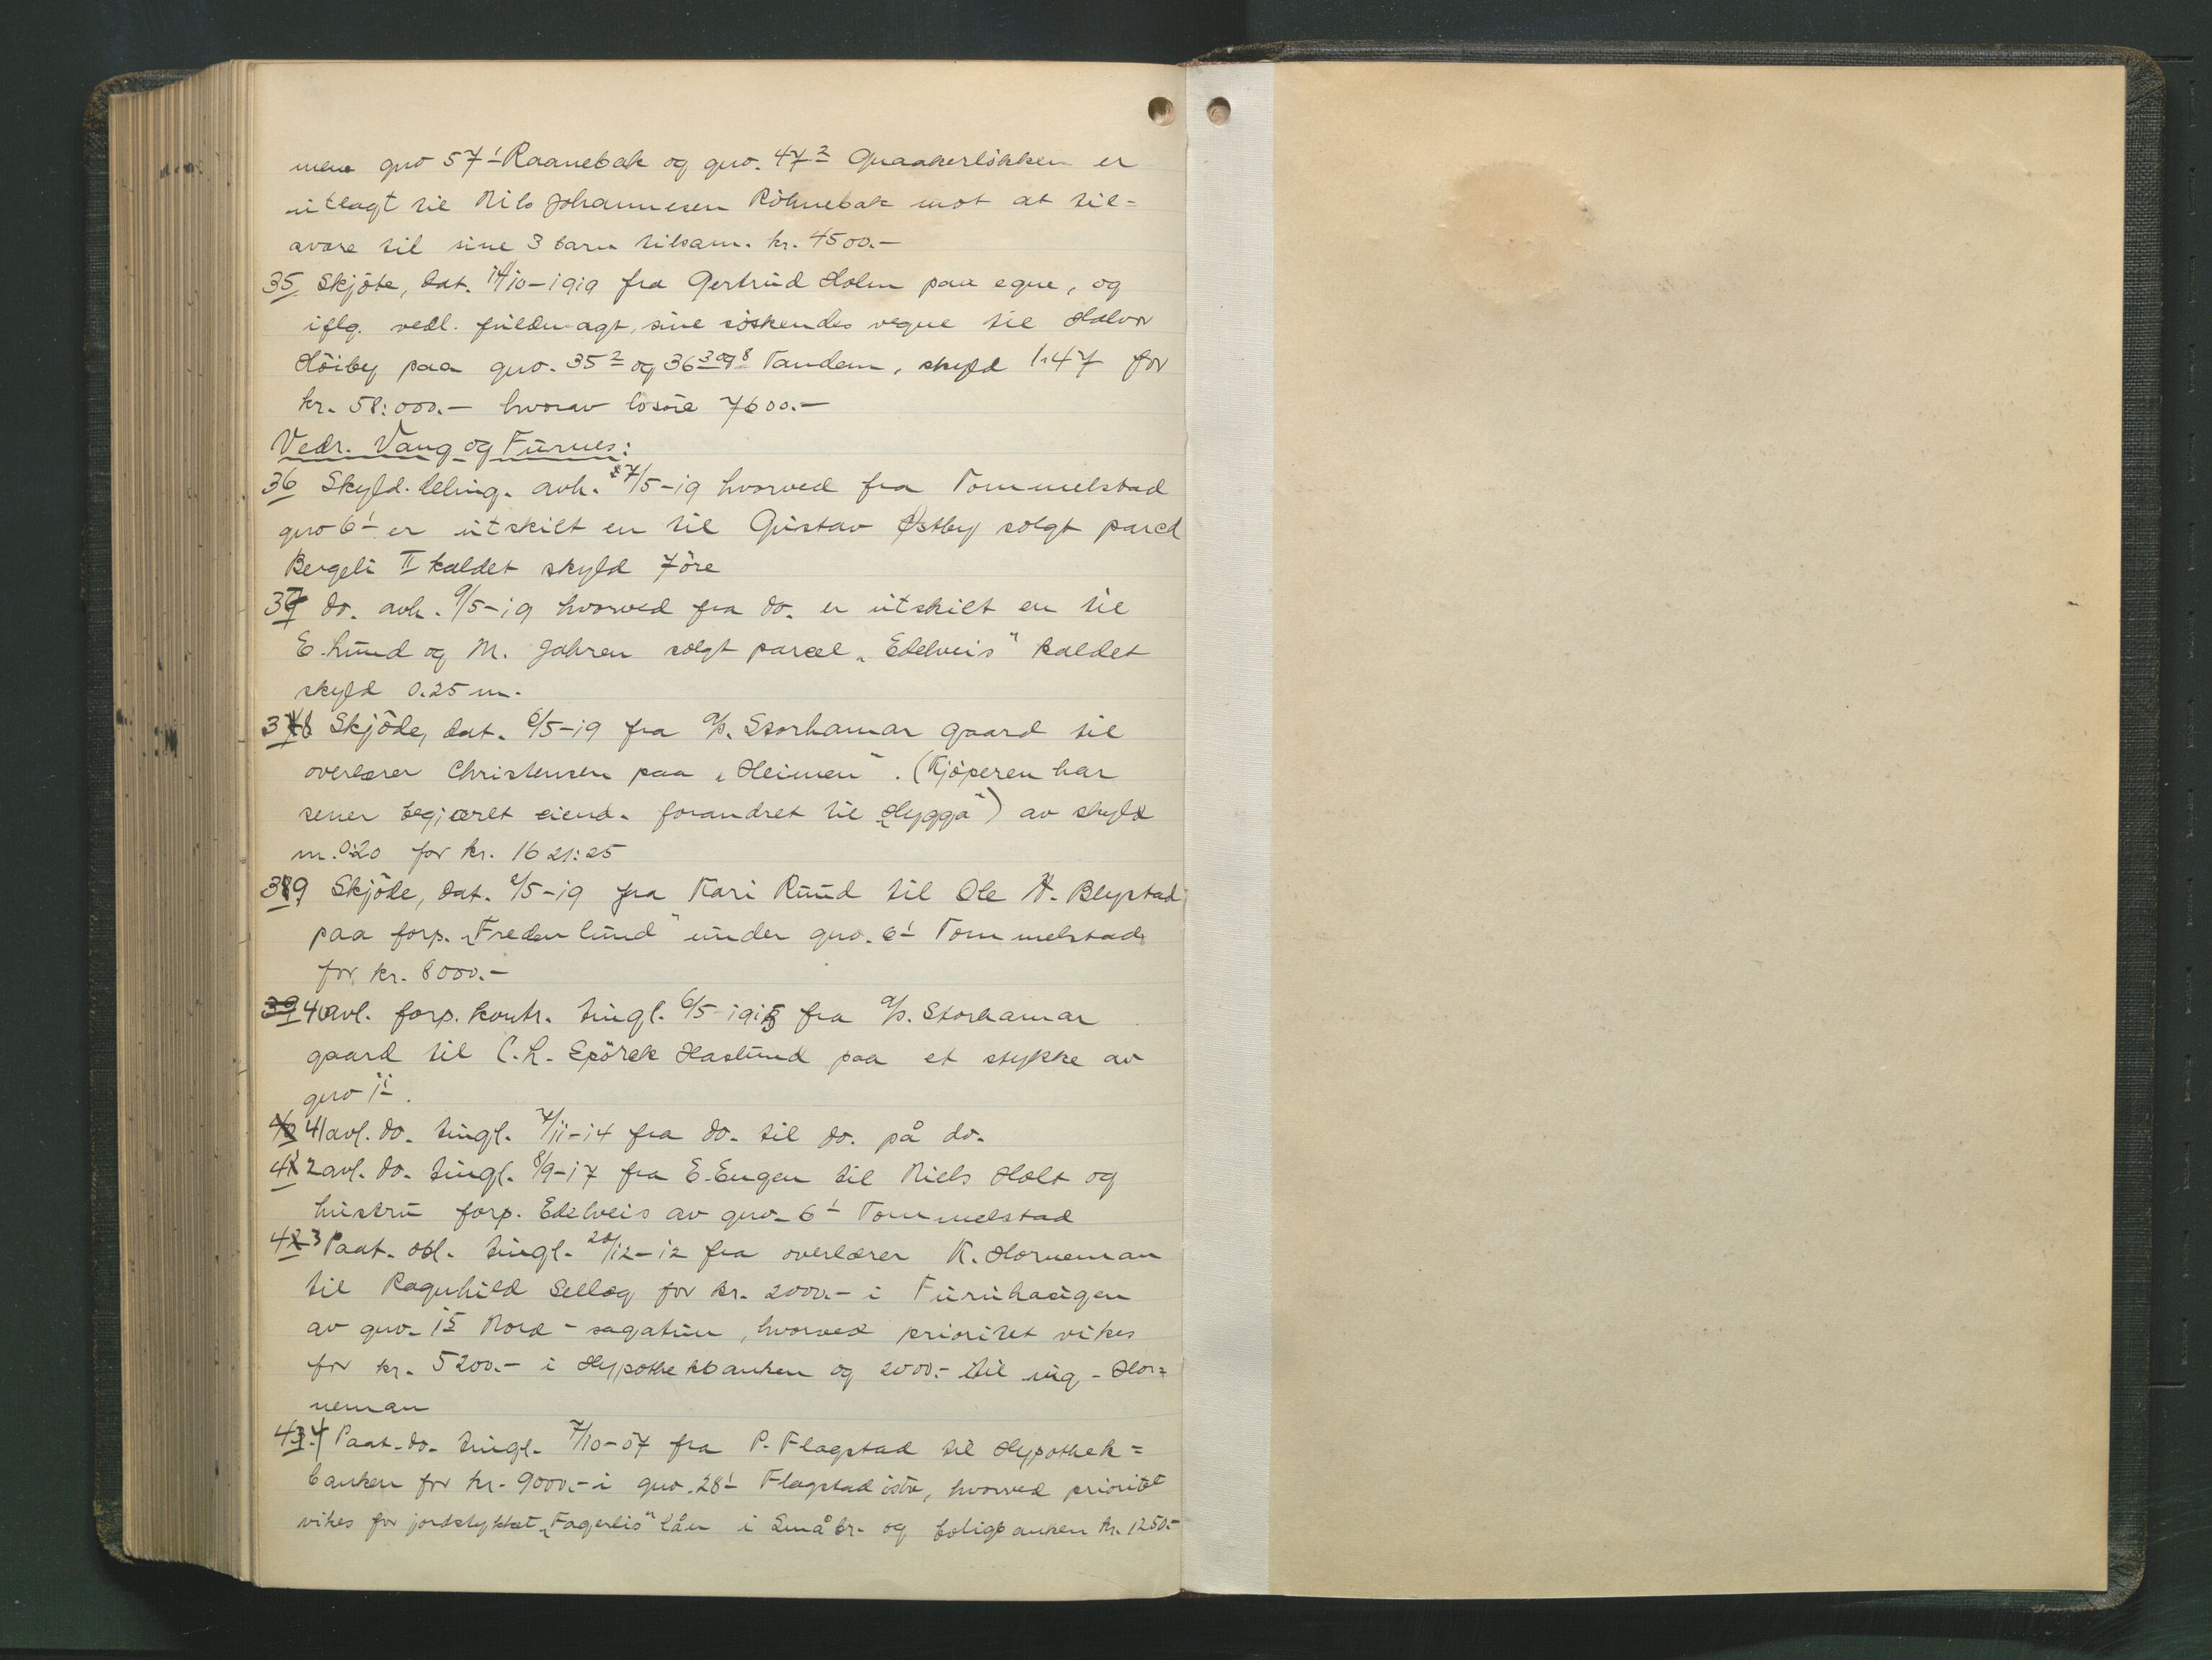 mens gno 57¹ Raanebak og gno. 47² Quaakerlökken er
utlagt til Nils Johannesen Röhnebak mot at til=
svare til sine 3 barn tilsam. kr. 4500.-
35. Skjöte, dat. 14/10-1919 fra Gertrud Holm paa egne, og
iflg. vedl. fuldmagt, sine söskendes vegne til Halvor
Höiby paa gno. 35² og 36³ og ⁸ Tandem, skyld 1.47 for
kr. 58:000.- hvorav lösöre 7600.-
Vedr. Vang og Furnes:
36 Skyld.deling. avh. 27/5-19 hvorved fra Tommelstad
gno 6¹ er utskilt en til Gustav Østby solgt parcel
Bergeli II kaldet skyld 7 öre
37 do. avh. 9/5-19 hvorved fra do. er utskilt en til
E. Lund og M. Jahren solgt parcel „Edelveis" kaldet
skyld 0.25 m.
38 Skjöde, dat. 6/5-19 fra a/s. Storhamar gaard til
overlærer Christensen paa „Heimen". (Kjöperen har
sener begjæret eiend. forandret til „Hygga") av skyld
m. 0.20 for kr. 1621:25
39 Skjöde, dat. /5-19 fra Kari Ruud til Ole H. Blystad
paa forp. „Fredenlund" under gno. 6¹ Tommelstad
for kr. 8000.-
40 avl. forp. kontr. tingl. 6/5-1915 fra a/s. Storhamar
gaard til C. L. Spörck Haslund paa et stykke av
gno 1¹.
41 avl. do. tingl. 7/11-14 fra do. til do. på do.
42 avl. do. tingl. 8/9-17 fra E. Engen til Niels Holt og
hustru forp. Edelveis av gno. 6¹ Tommelstad
43 Paat. obl. tingl. 20/12-12 fra overlærer K. Horneman
til Ragnhild Sellæg for kr. 2000.- i Furuhaugen
av gno. 15 Nord-sagatun, hvorved prioritet vikes
for kr. 5200.- i Hypothekbanken og 2000.- til ing. Hor=
neman
44 Paat. do. tingl. 7/10-07 fra P. Flagstad til Hypothek=
banken for kr. 9000.- i gno. 28¹ Flagstad östre, hvorved prioritet
vikes for jordstykket „Fagerlis" lån i Småbr. og boligbanken kr. 1250.-